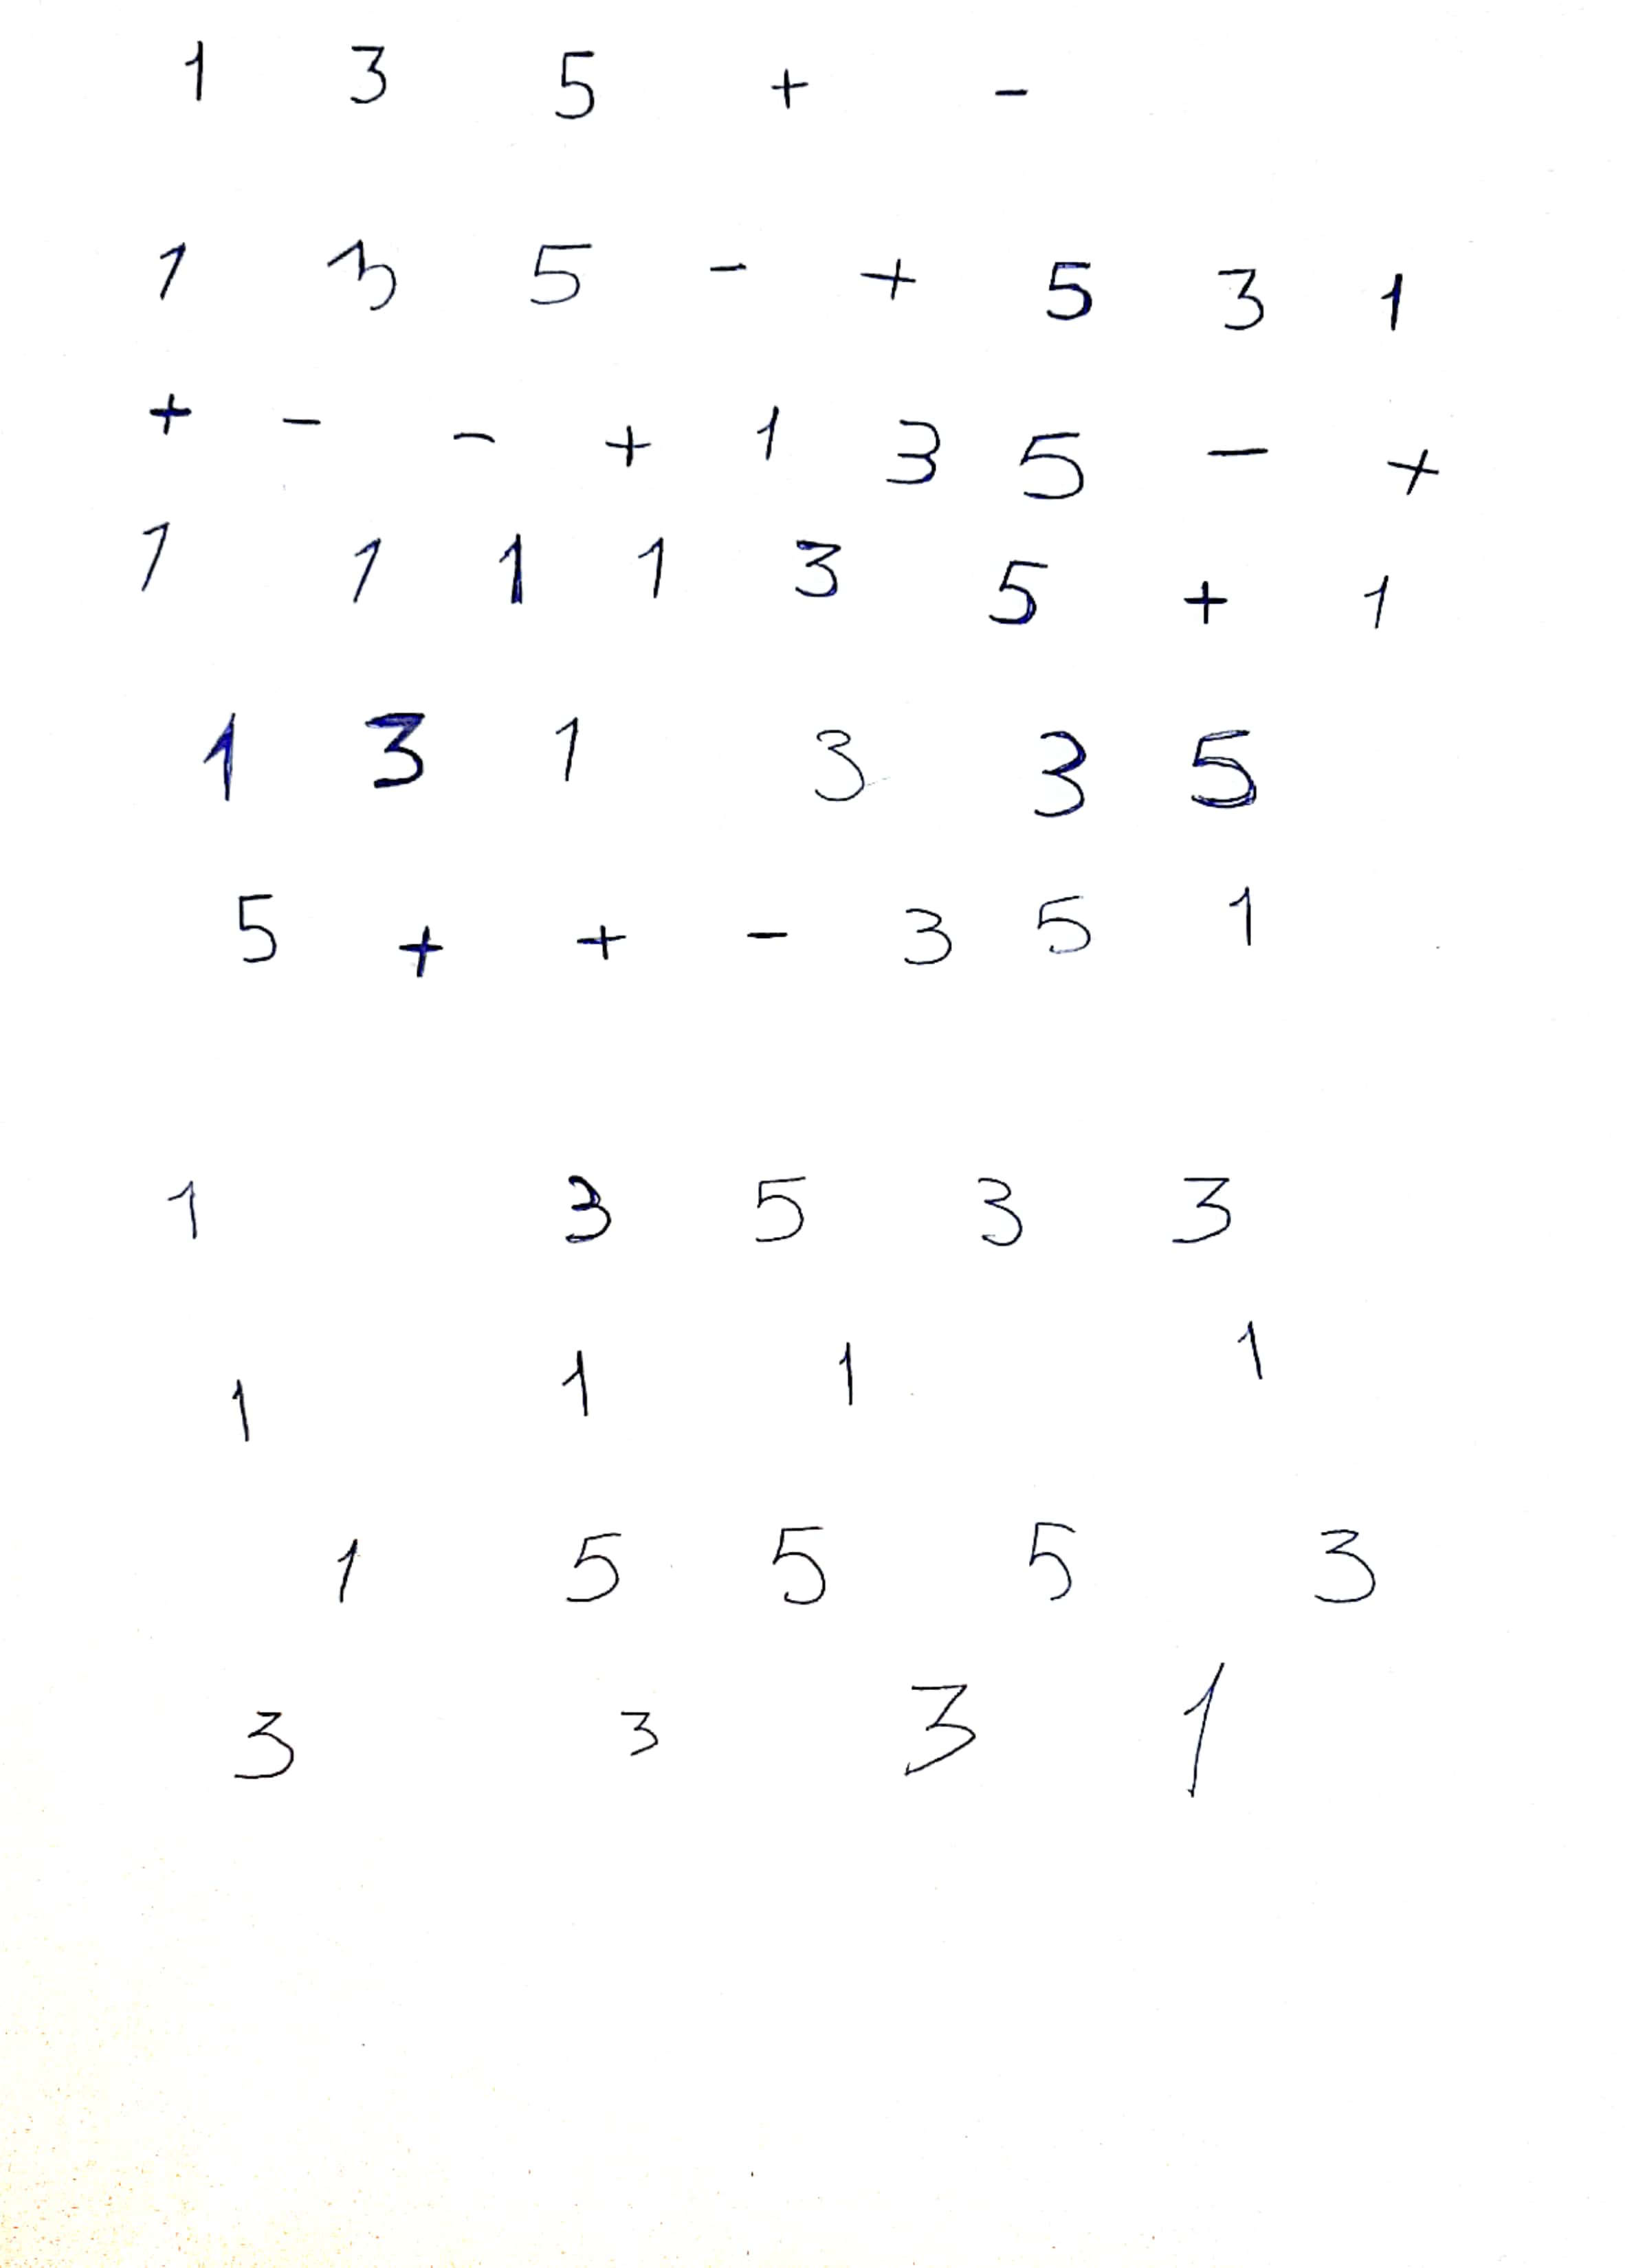 1 3 5 + -
1 3 5 - + 5 3 1
+ - - + 1 3 5 - +
1 1 1 1 3 5 + 1
1 3 1 3 3 5
5 + + - 3 5 1
1 3 5 3 3
1 1 1 1
1 5 5 5 3
3 3 3 1